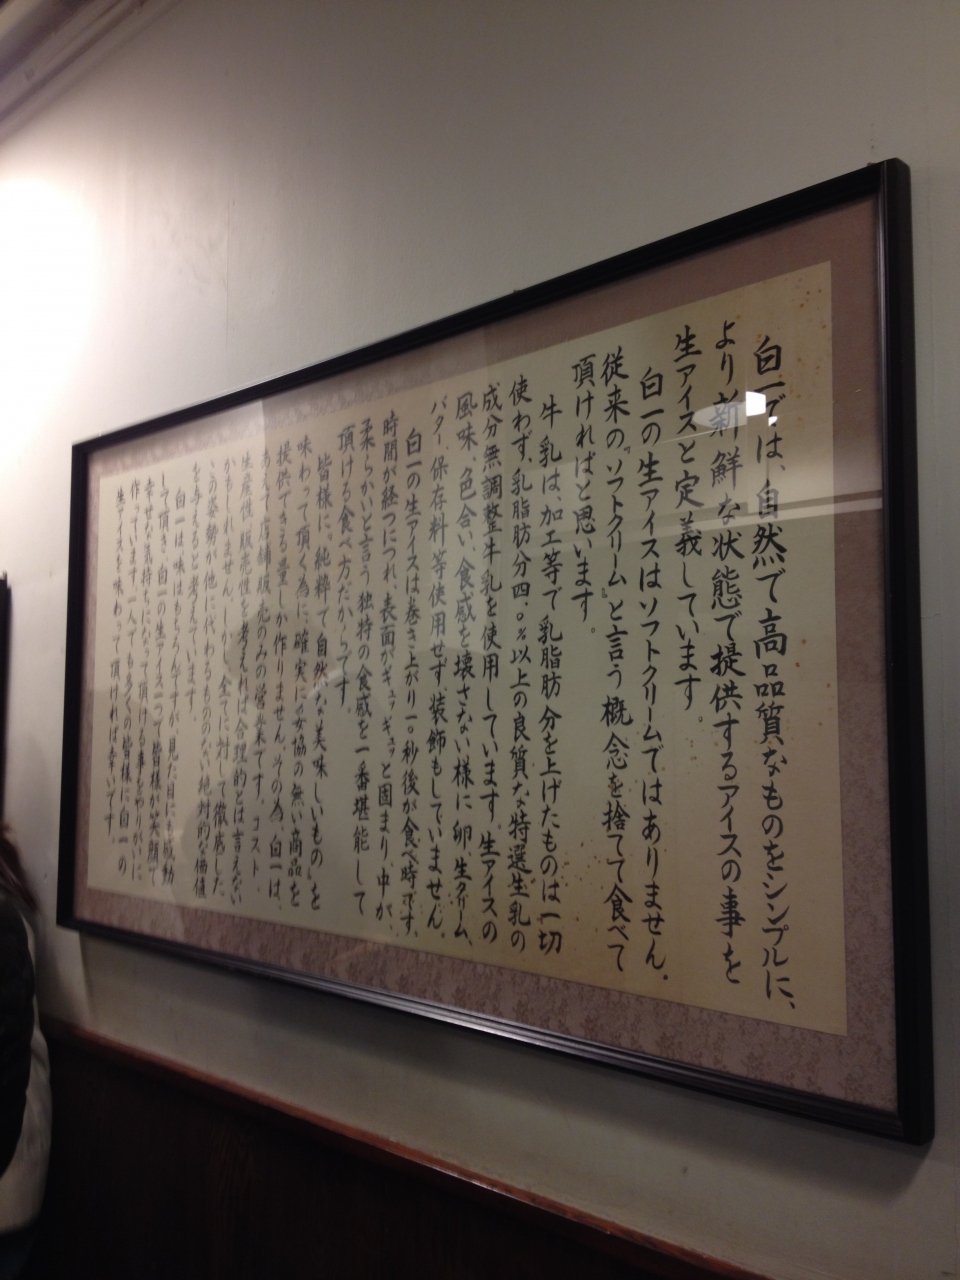 白一では、自然で高品質なものをシンプルに、
より新鮮な状態で提供するアイスの事を
生アイスと定義しています。
白一の生アイスはソフトクリームではありません。
従来の『ソフトクリーム』と言う概念を捨てて食べて
頂ければと思います。
牛乳は、加工等で乳脂肪分を上げたものは一切
使わず、乳脂肪分四.〇%以上の良質な特選生乳の
成分無調整牛乳を使用しています。生アイスの
風味、色合い、食感を壊さない様に卵、生クリーム、
バター、保存料等使用せず、装飾もしていません。
白一の生アイスは巻き上がり一〇秒後が食べ時です。
時間が経つにつれ、表面がギュッギュッと固まり、中が、
柔らかいと言う独特の食感を一番堪能して
頂ける食べ方だからです。
皆様に、『純粋で自然な美味しいもの』を
味わって頂く為に、確実に妥協の無い商品を
提供できる量しか作りません。その為、白一は、
あえて店舗販売のみの営業です。コスト、
生産性、販売性を考えれば合理的とは言えない
かもしれません。しかし、全てに対して徹底した
この姿勢が他に代わるもののない絶対的な価値
を与えると考えています。
白一は、味はもちろんですが、見た目にも感動
して頂き、白一の生アイス一つで皆様が笑顔で
幸せな気持ちになって頂ける事をやりがいに
作っています。一人でも多くの皆様に白一の
生アイスを味わって頂ければ幸いです。